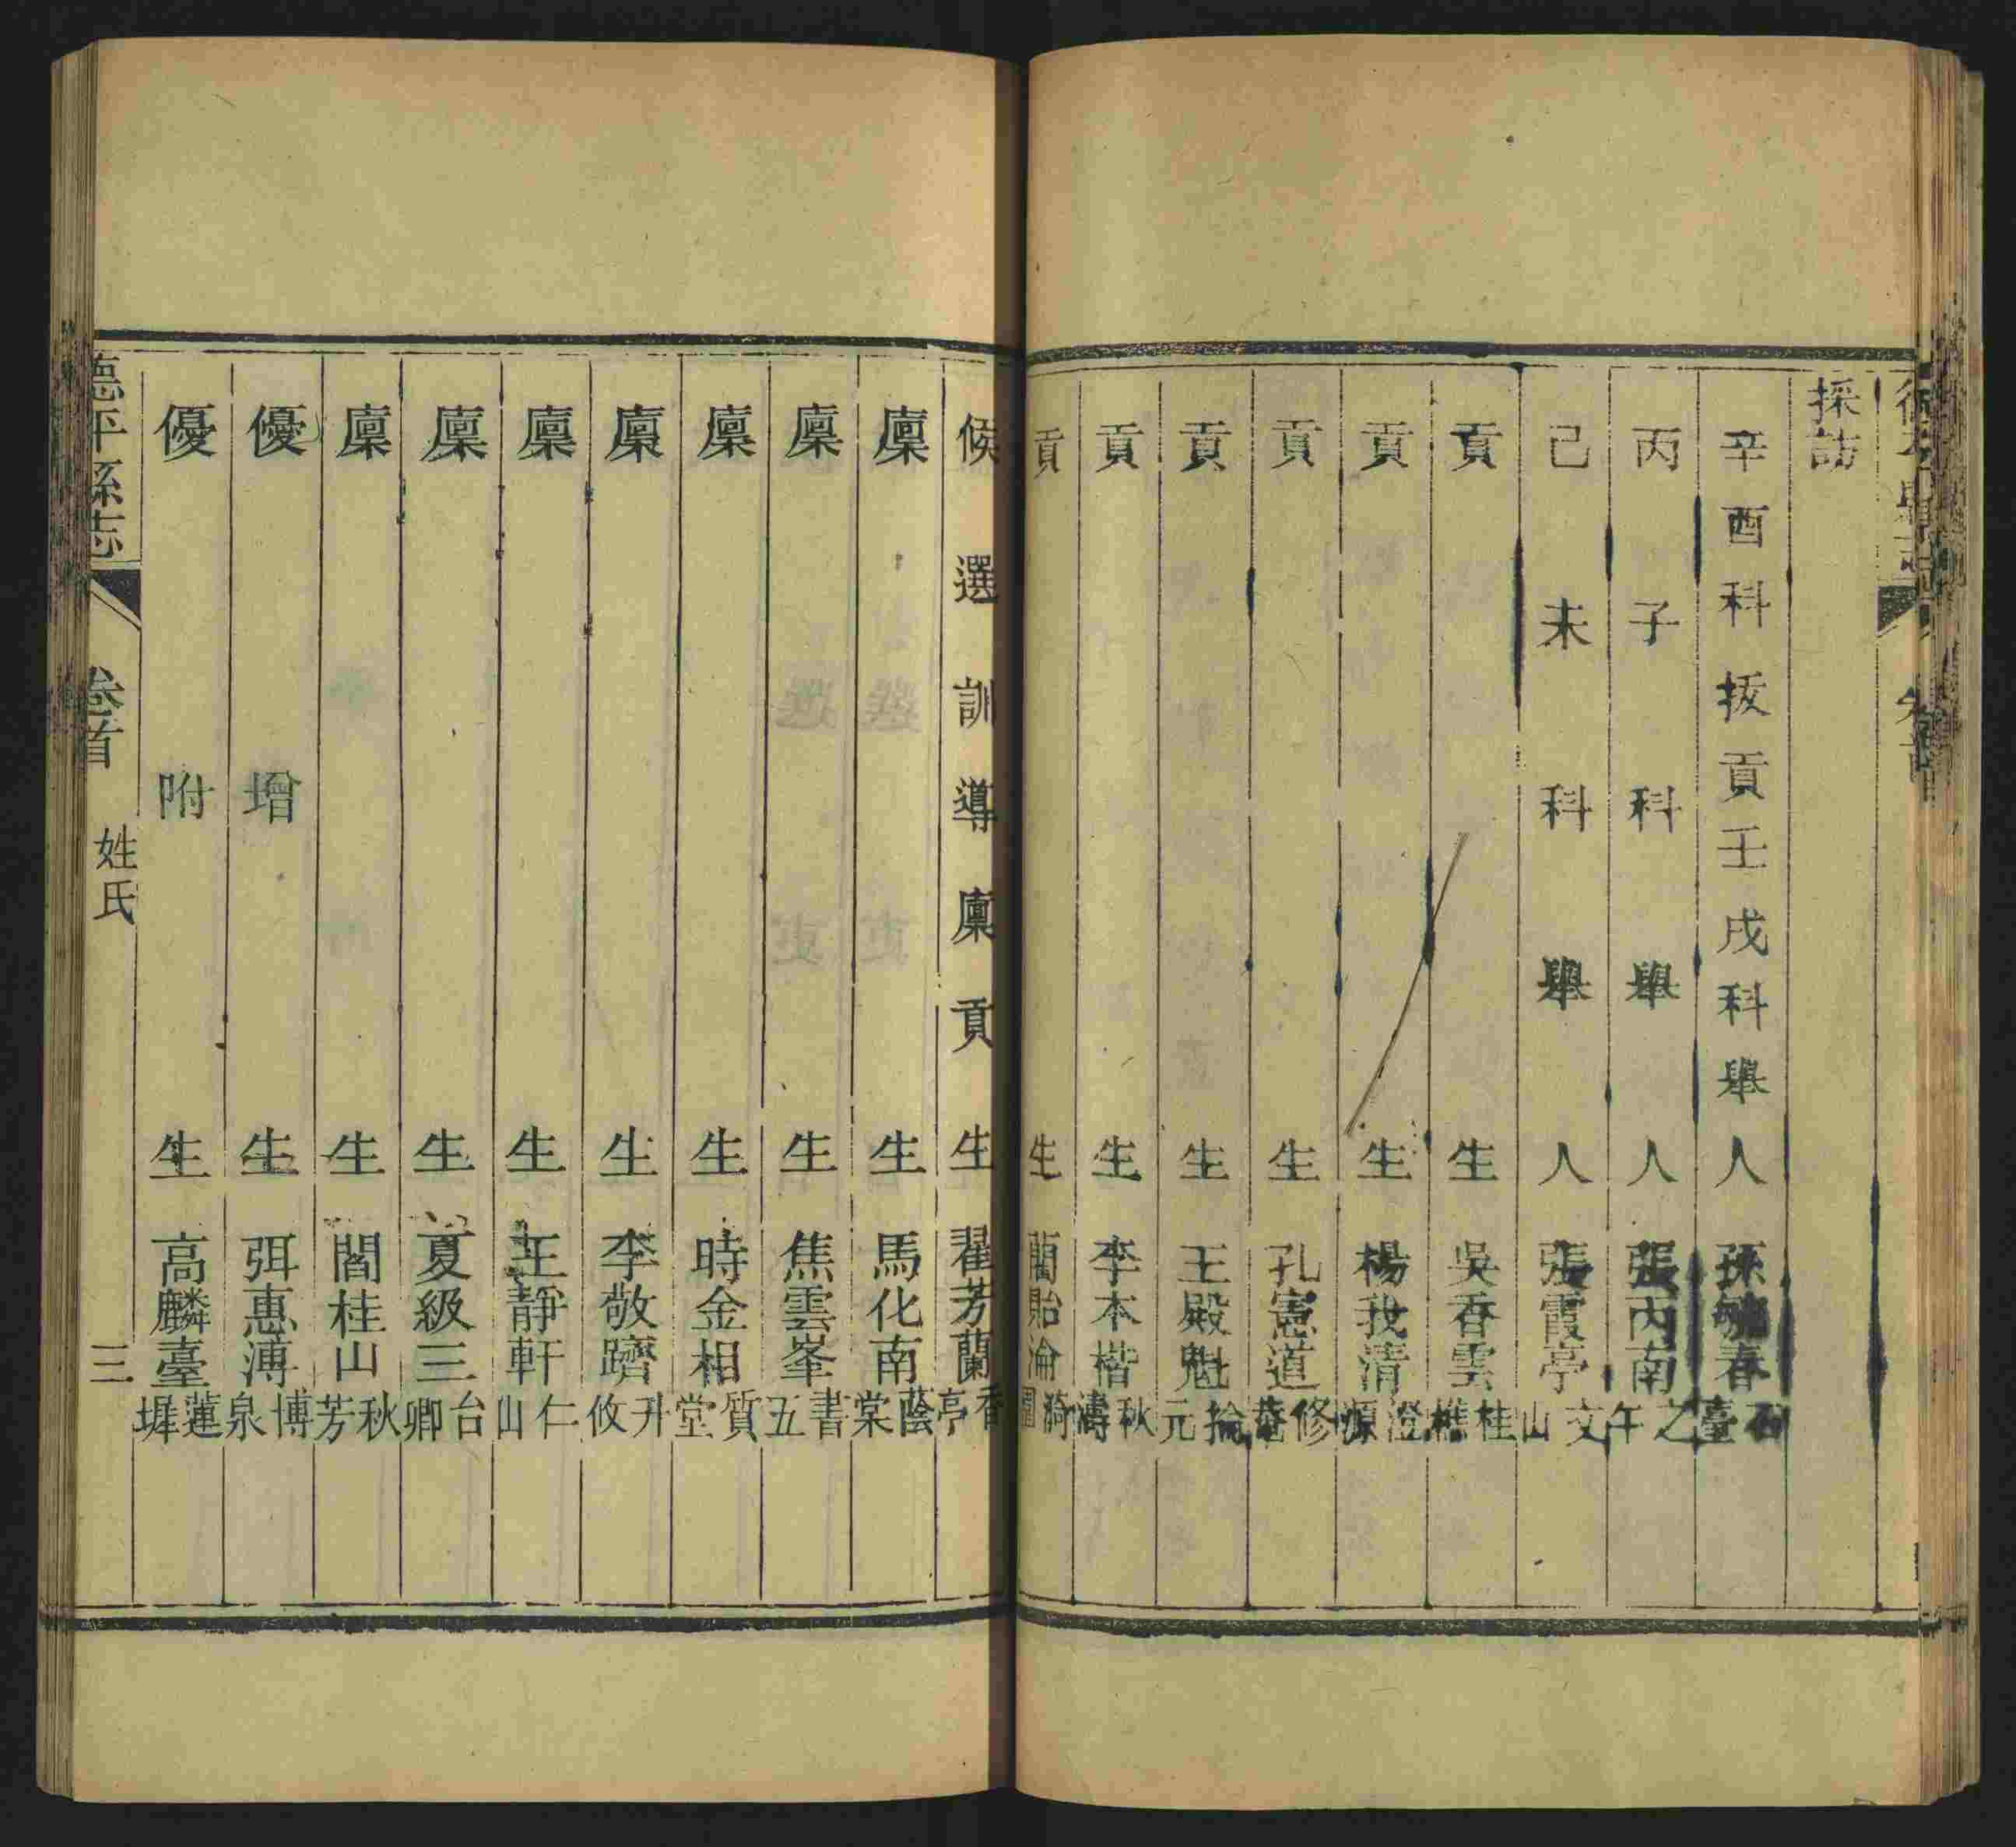 採訪
辛酉科拔貢壬戌科舉人孫毓春石臺
丙子科舉人張丙南之午
己未科舉人張霞亭文山
貢生吳香雲桂樵
貢生楊我清澄源
貢生孔憲道修菴
貢生王殿魁掄元
貢生李本楷秋濤
貢生藺貽淪漪園
候選訓導廩貢生翟芳蘭香亭
廩生馬化南蔭棠
廩生焦雲峯書五
廩生時金相質堂
廩生李敬躋升攸
廩生王靜軒仁山
廩生夏級三台卿
廩生閻桂山秋芳
優增生弭惠溥博泉
優附生高麟臺蓮墀
德平縣志 卷首 姓氏 三